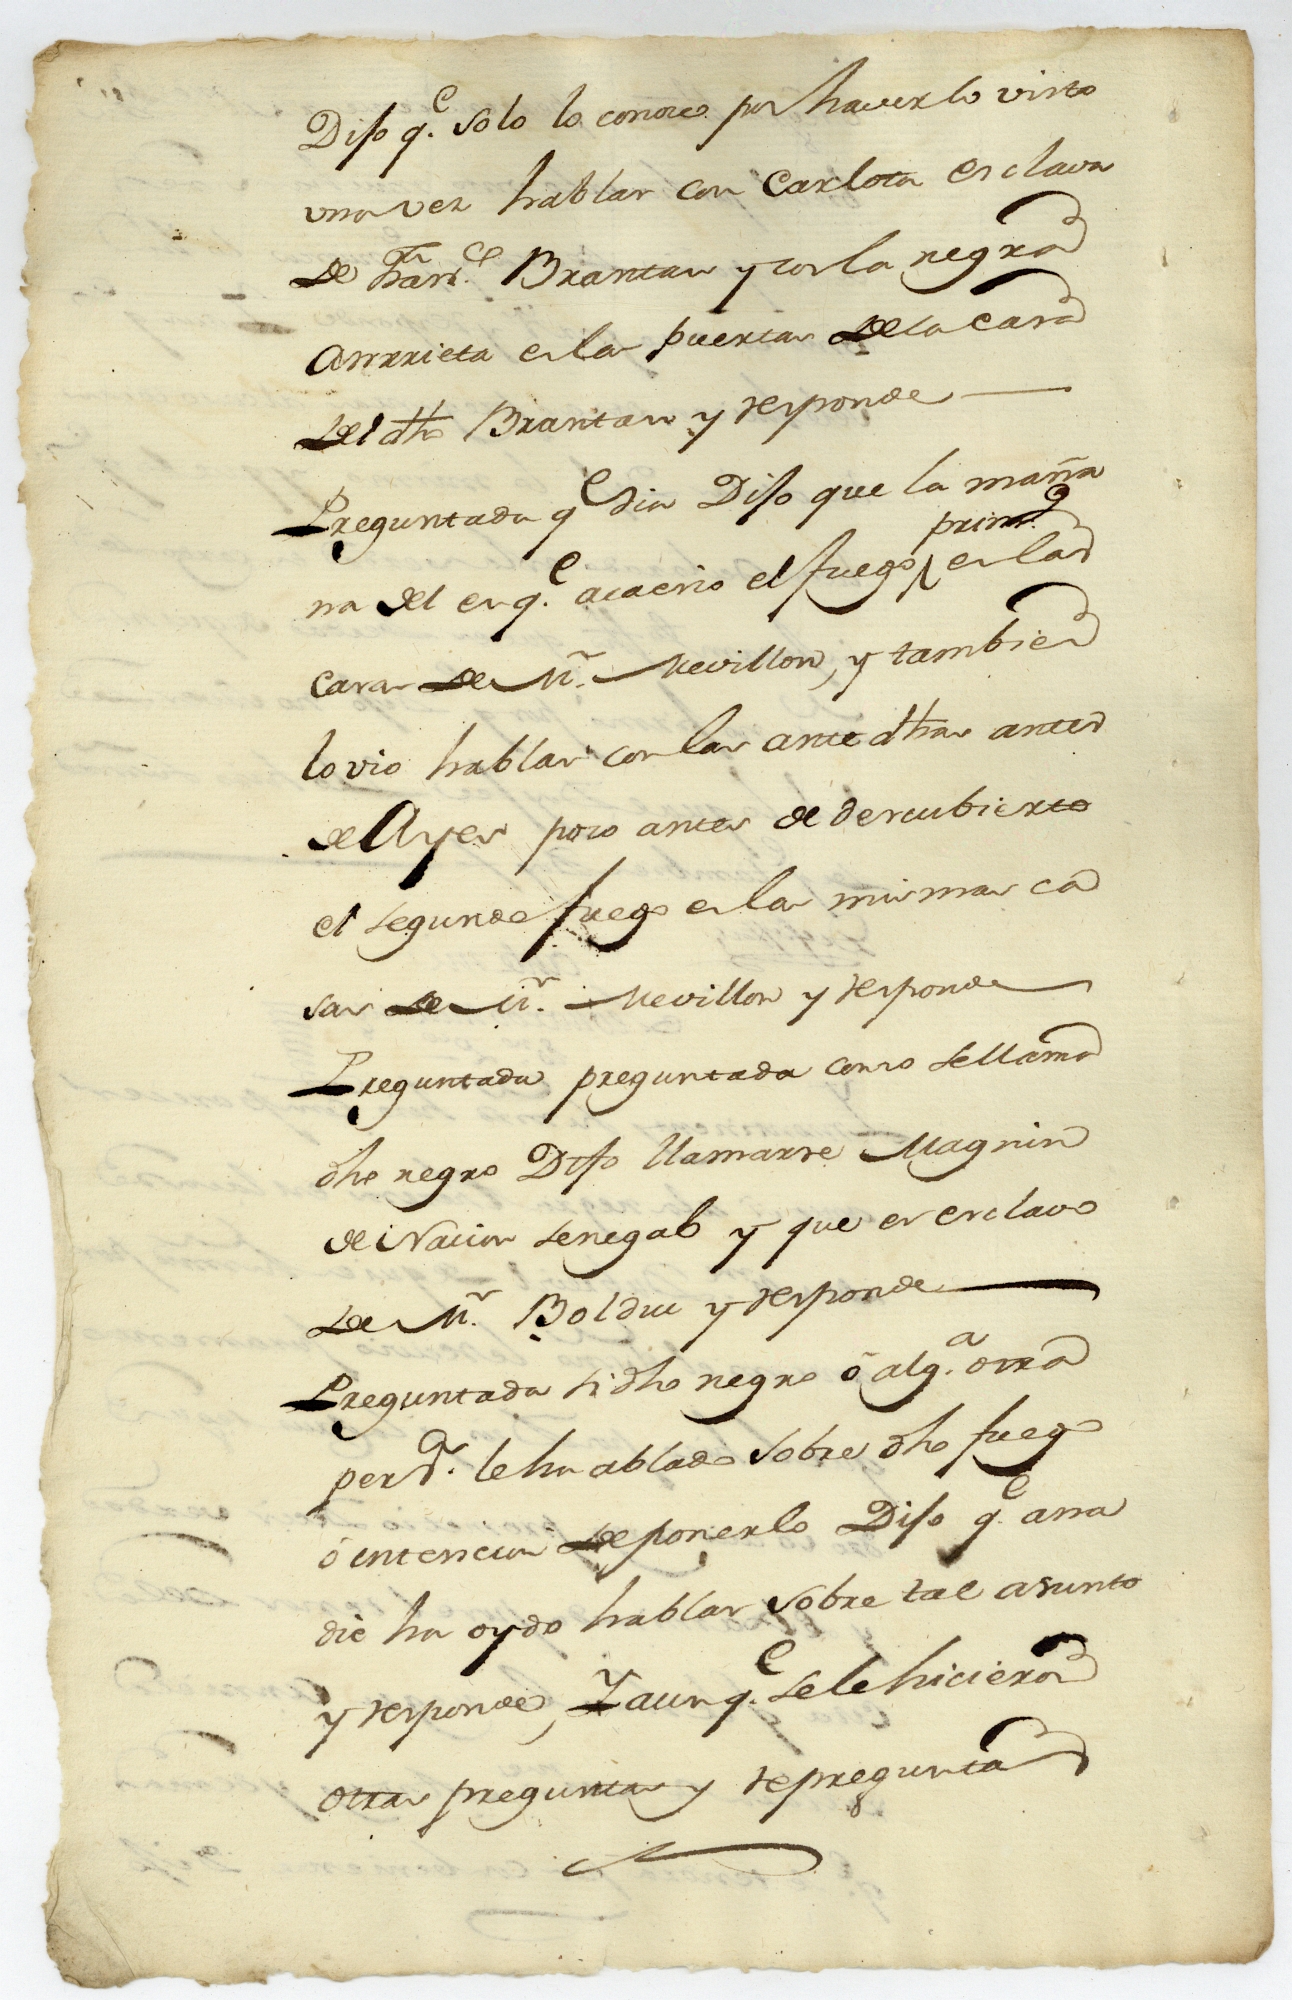 Dijo q.e solo lo conoce por haverlo visto
una vez hablar con Carlota esclava
de Fran.co Brantan y con la negra
Anrrieta en la puerta de la casa
del dho Brantan y responde
Preguntada q.e dia Dijo que la maña
prim.o
na del en q.e acaecio el fuego en la
casa de M.r Mevillon, y tambien
lo vio hablar con las antedhas antes
de Ayer poco antes de descubierto
el segundo fuego en la misma ca
sa de M.r Mevillon y responde
Preguntada preguntada como se llama
dho negro Dijo llamarse Magnin
de Nacion Senegal y que es esclavo
de M.r Bolduc y responde
Preguntada si dho negro ó alg.a otra
pers.a le ha ablado sobre dho fuego
ó intencion de ponerlo Dijo q.e a na
die ha oydo hablar sobre tal asunto
y responde, Y aunq.e se le hicieron
otras preguntas y repregunta